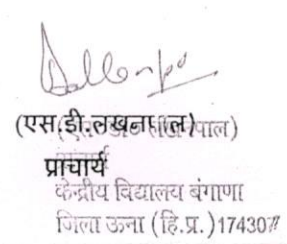 (एस.डी.लखनपाल)
प्राचार्य
केन्द्रीय विद्यालय बंगाणा
जिला ऊना (हि.प्र.)174307